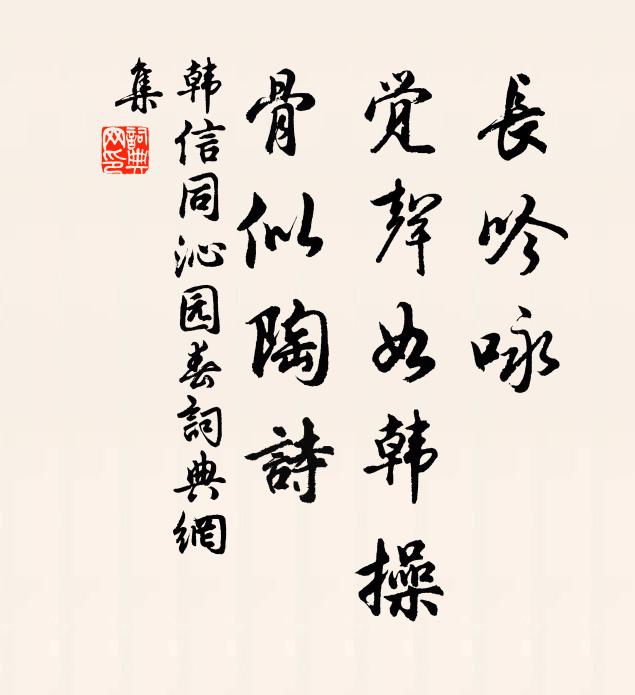 長吟咏
觉聲如韩操
骨似陶詩
韩信同沁园春詞典網
集
詞典网印